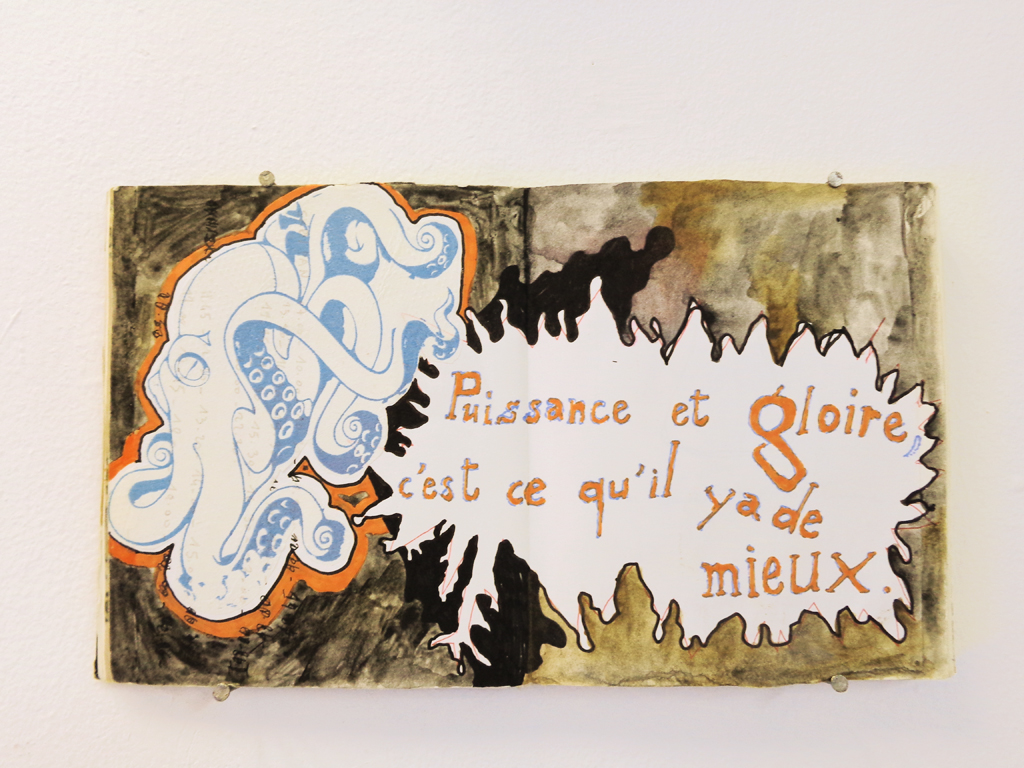 Puissance et gloire,
c'est ce qu'il
y a de
mieux.